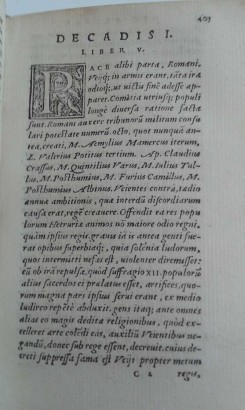 405
DECADIS I.
LIBER V.
PACE alibi parta, Romani,
Veijq; in armis erant, tãta ira
odioq; ut uictis finẽ adesse app
pareret. Comitia utriusq; populi
longe diuersa ratione facta
sunt. Romani auxere tribunorũ militum consu
lari potestate numerũ. octo, quot nunquã an-
tea, creati, M. Aemylius Mamercus iterum,
L. Valerius Potitus tertium. Ap. Claudius
Crassus, M. Quintilius Varus, M. Iulius Ful-
lus, M. Posthumius, M. Furius Camillus, M.
Posthumius Albinus. Veientes contrà, tædio
annuæ ambitionis, quæ interdũ discordiarum
causa erat, regẽ creauere. Offendit ea res popu
lorum Hetruriæ animos nõ maiore odio regni,
quàm ipsius regis. grauis iã is antea genti fue-
rat opibus superbiaq;, quia solẽnia ludorum,
quos intermitti nefas est, uiolenter diremisset:
cũ ob irã repulsæ, quòd suffragio XII. populorũ
alius sacerdos ei prælatus esset, artifices, quo-
rum magna pars ipsius serui erant, ex medio
ludicro repẽtè abduxit. gens itaq; ante omneis
alias eo magis dedita religionibus, quòd ex-
celleret arte colẽdi eas, auxiliũ Veientibus ne-
gandũ, donec sub rege essent, decreuit. cuius de-
creti suppressa fama est Veijs propter metum
C 2 regis,